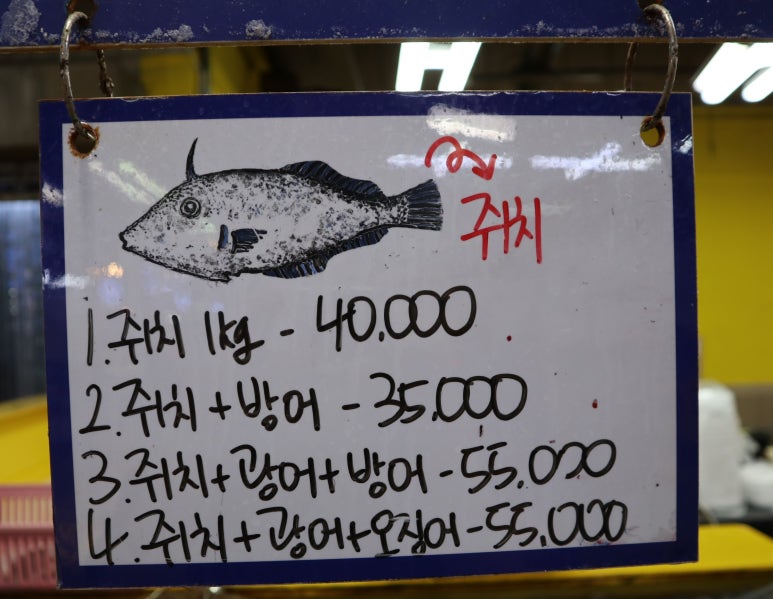 쥐치
1. 쥐치 1kg - 40.000
2. 쥐치 + 방어 - 35.000
3. 쥐치 + 광어 + 방어 - 55.000
4. 쥐치 + 광어 + 오징어 - 55.000